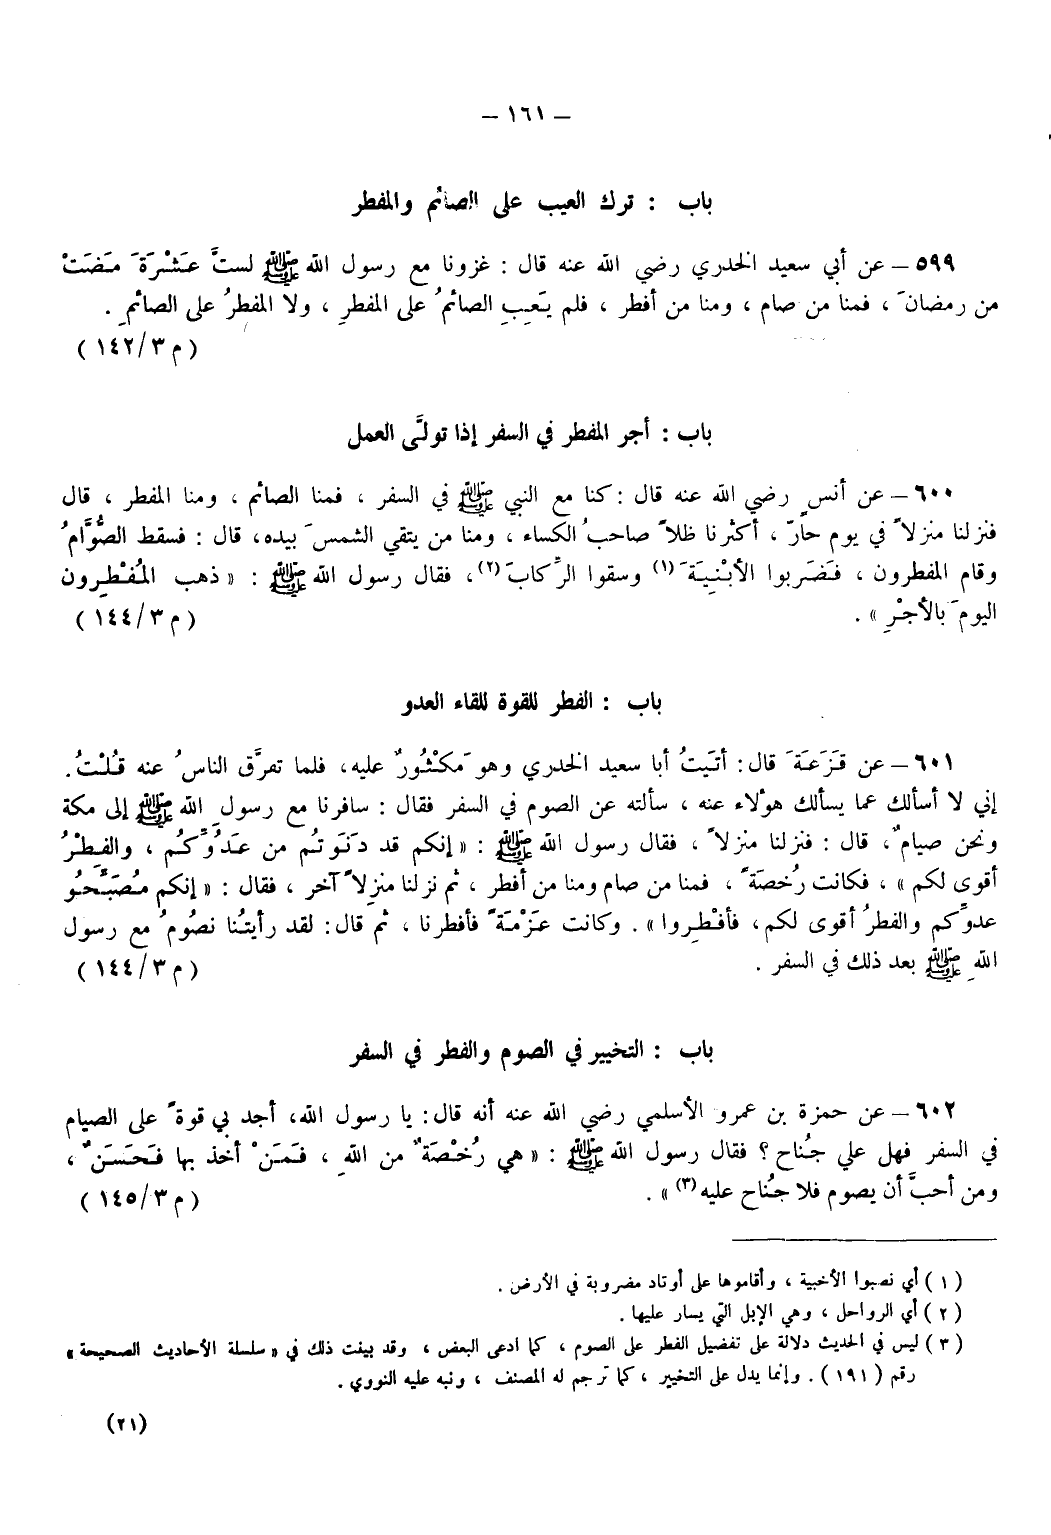 – ١٦١ –
باب : ترك العيب على الصائم والمفطر
٥٩٩ – عن أبي سعيد الخدري رضي الله عنه قال : غزونا مع رسول الله ﷺ لستَّ عَشْرَةَ مَضَتْ
من رمضانَ ، فمنا من صام ، ومنا من أفطر ، فلم يَعِبِ الصائمُ على المفطرِ ، ولا المفطرُ على الصائمِ .
( م ٣/١٤٢ )
باب : أجر المفطر في السفر إذا تولَّى العمل
٦٠٠ – عن أنسٍ رضي الله عنه قال : كنا مع النبي ﷺ في السفر ، فمنا الصائم ، ومنا المفطر ، قال
فنزلنا منزلاً في يوم حارٍّ ، أكثرنا ظلاً صاحبُ الكساء ، ومنا من يتقي الشمسَ بيده، قال : فسقط الصُّوَّامُ
وقام المفطرون ، فَضَربوا الأبْنِيَةَ (١) وسقوا الرِّكابَ (٢)، فقال رسول الله ﷺ : « ذهب المُفْطِرون
اليومَ بالأجْرِ » .
( م ٣/١٤٤ )
باب : الفطر للقوة للقاء العدو
٦٠١ – عن قَزَعَةَ قال : أتَيتُ أبا سعيد الخدري وهو مَكْثُورٌ عليه، فلما تفرَّق الناسُ عنه قُلْتُ.
إني لا أسألك عما يسألك هؤلاء عنه ، سألته عن الصوم في السفر فقال : سافرنا مع رسول الله ﷺ إلى مكة
ونحن صيامٌ، قال : فنزلنا منزلاً ، فقال رسول الله ﷺ : « إنكم قد دَنَوتُم من عَدُوِّكُم ، والفِطْرُ
أقوى لكم » ، فكانت رُخصَةً ، فمنا من صام ومنا من أفطر ، ثم نزلنا منزِلاً آخر ، فقال : « إنكم مُصَبِّحُو
عدوِّكم والفطرُ أقوى لكم، فأفْطِروا » . وكانت عَزْمَةً فأفطرنا ، ثم قال: لقد رأيتُنا نصُومُ مع رسول
اللهِ ﷺ بعد ذلك في السفر .
( م ٣/١٤٤ )
باب : التخيير في الصوم والفطر في السفر
٦٠٢ – عن حمزة بن عمرو الأسلمي رضي الله عنه أنه قال: يا رسول الله، أجد بي قوةً على الصيام
في السفر فهل علي جُناح ؟ فقال رسول الله ﷺ : « هي رُخْصَةٌ من اللهِ ، فَمَنْ أخذ بها فَحَسَنٌ ،
ومن أحبَّ أن يصوم فلا جُناح عليه (٣) » .
( م ٣/١٤٥ )
( ١ ) أي نصبوا الأخبية ، وأقاموها على أوتاد مضروبة في الأرض .
( ٢ ) أي الرواحل ، وهي الإبل التي يسار عليها .
( ٣ ) ليس في الحديث دلالة على تفضيل الفطر على الصوم ، كما ادعى البعض ، وقد بينت ذلك في « سلسلة الأحاديث الصحيحة »
رقم ( ١٩١ ) . وإنما يدل على التخيير ، كما ترجم له المصنف ، ونبه عليه النووي .
(٢١)